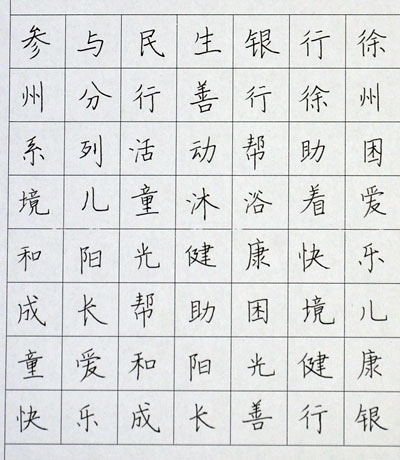 参与民生银行徐
州分行善行徐州
系列活动帮助困
境儿童沐浴着爱
和阳光健康快乐
成长帮助困境儿
童爱和阳光健康
快乐成长善行银